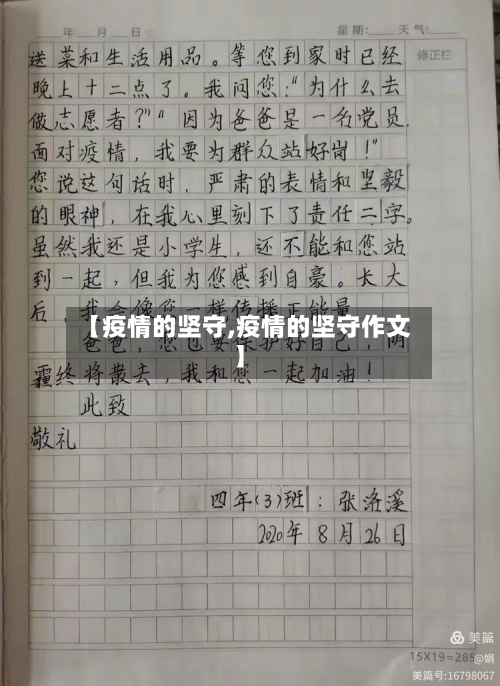 年 月 日 星期: 天气:
修正栏
送菜和生活用品。等您到家时已经
晚上十二点了。我问您:“为什么去
做志愿者?”“因为爸爸是一名党员,
面对疫情,我要为群众站好岗!”
您说这句话时,严肃的表情和坚毅
的眼神,在我心里刻下了责任二字。
虽然我还是小学生,还不能和您站
到一起,但我为您感到自豪。长大
后,我会像您一样传播正能量。
【疫情的坚守,疫情的坚守作文
】
爸爸,您也要保护好自己,阴
霾终将散去,我和您一起加油!
此致
敬礼
四年(3)班:张洛溪
2020年8月26日
美篇
15X19=285
@娟
美篇号:16798067